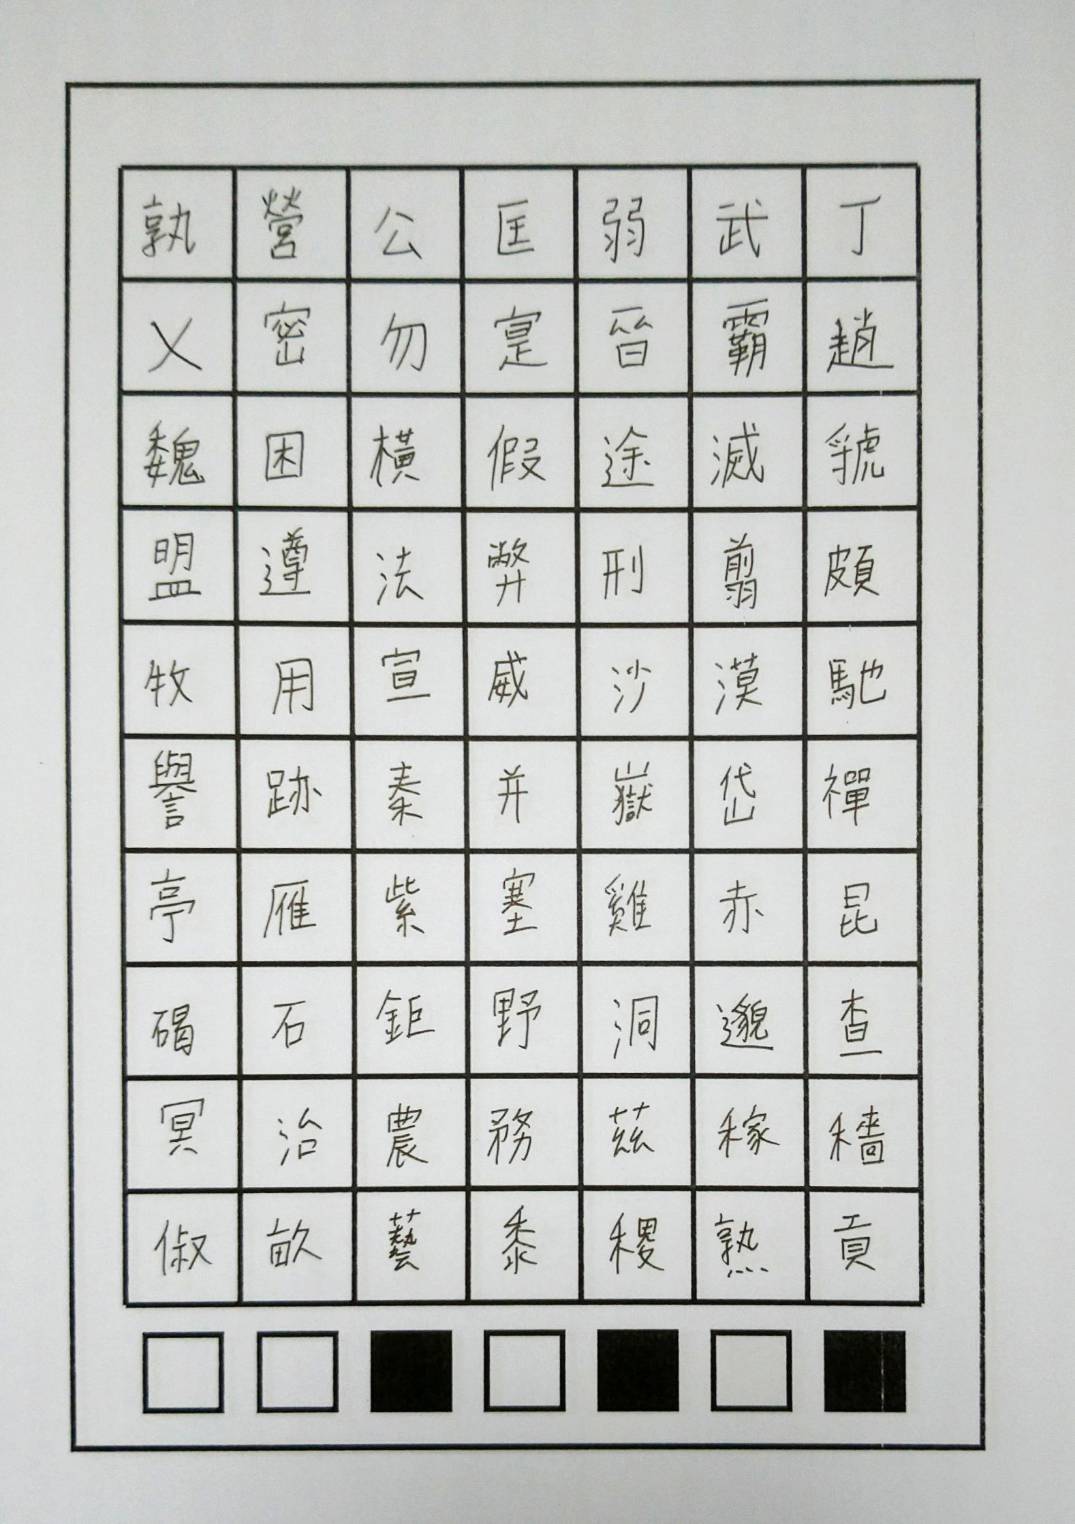 孰營公匡弱武丁
乂密勿寔晉霸趙
魏困橫假途滅虢
盟遵法弊刑翦頗
牧用宣威沙漠馳
譽跡秦并嶽岱禪
亭雁紫塞雞赤昆
碣石鉅野洞邈查
冥治農務茲稼穡
俶畝藝黍稷熟貢